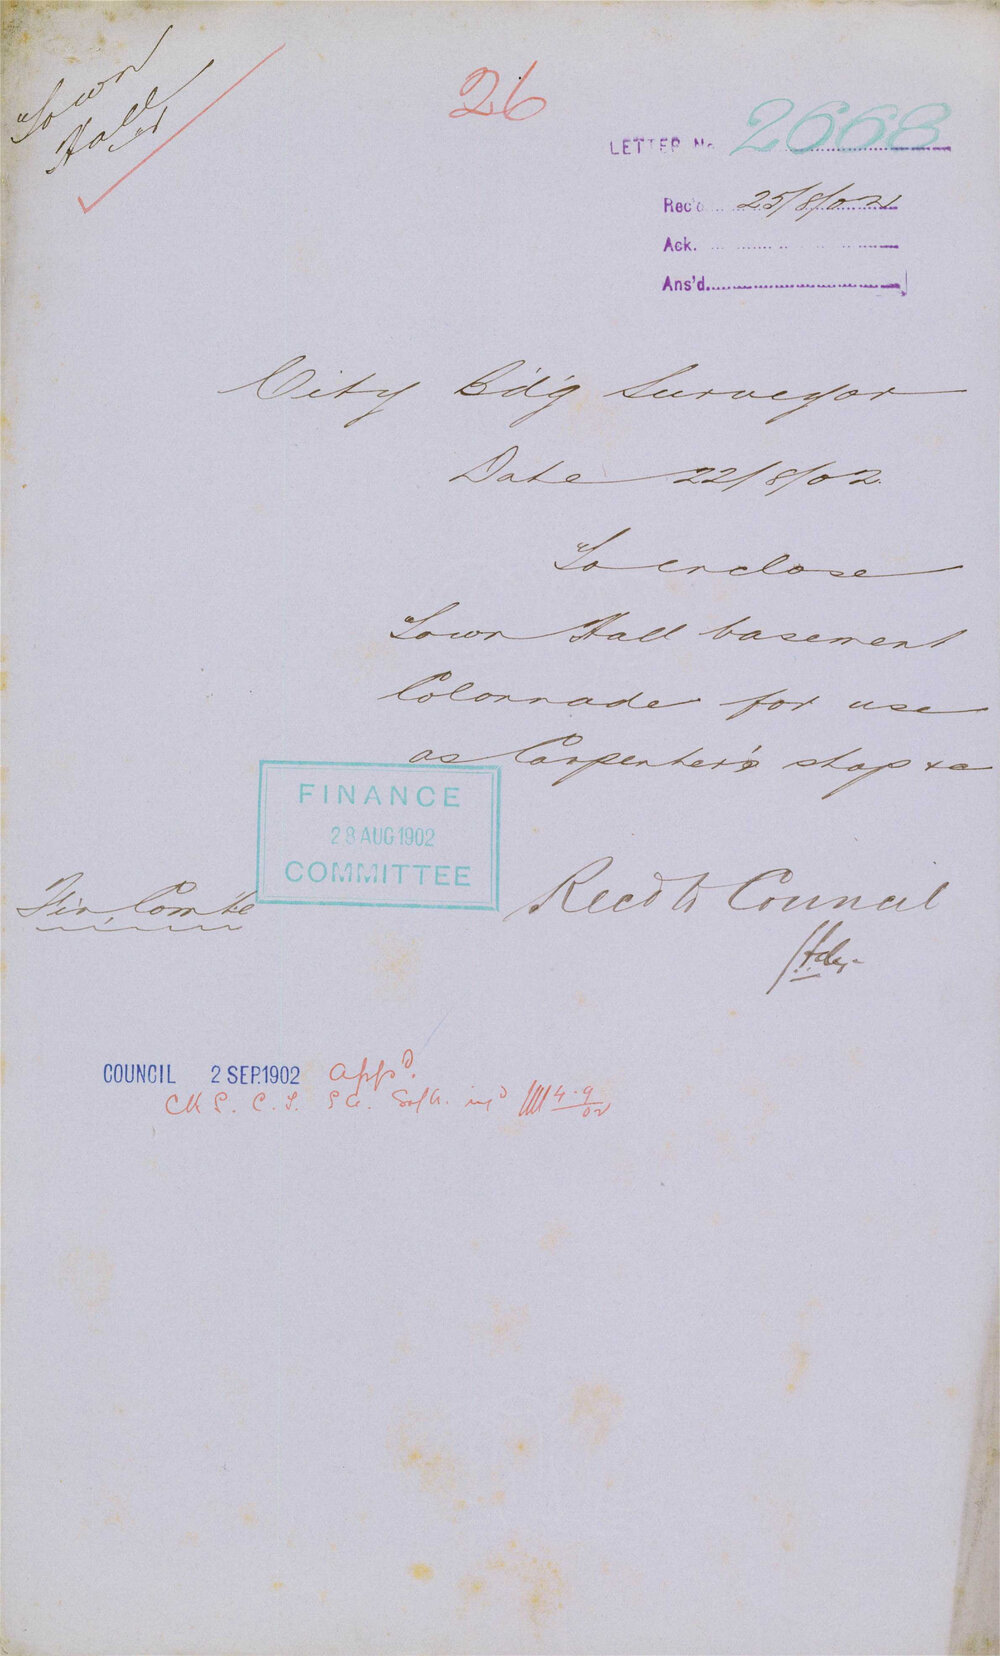 Town
Hall
26
LETTER No. 2668
Rec'd. 25/8/02
Ack.
Ans'd.
City Bd'g Surveyor
Date 22/8/02.
To enclose
Town Hall basement
Colonnade for use
as Carpenter's shop &c
FINANCE
28 AUG 1902
COMMITTEE
Fin. Com'tee
Recd to Council
COUNCIL 2 SEP.1902 Appd.
4.9
02